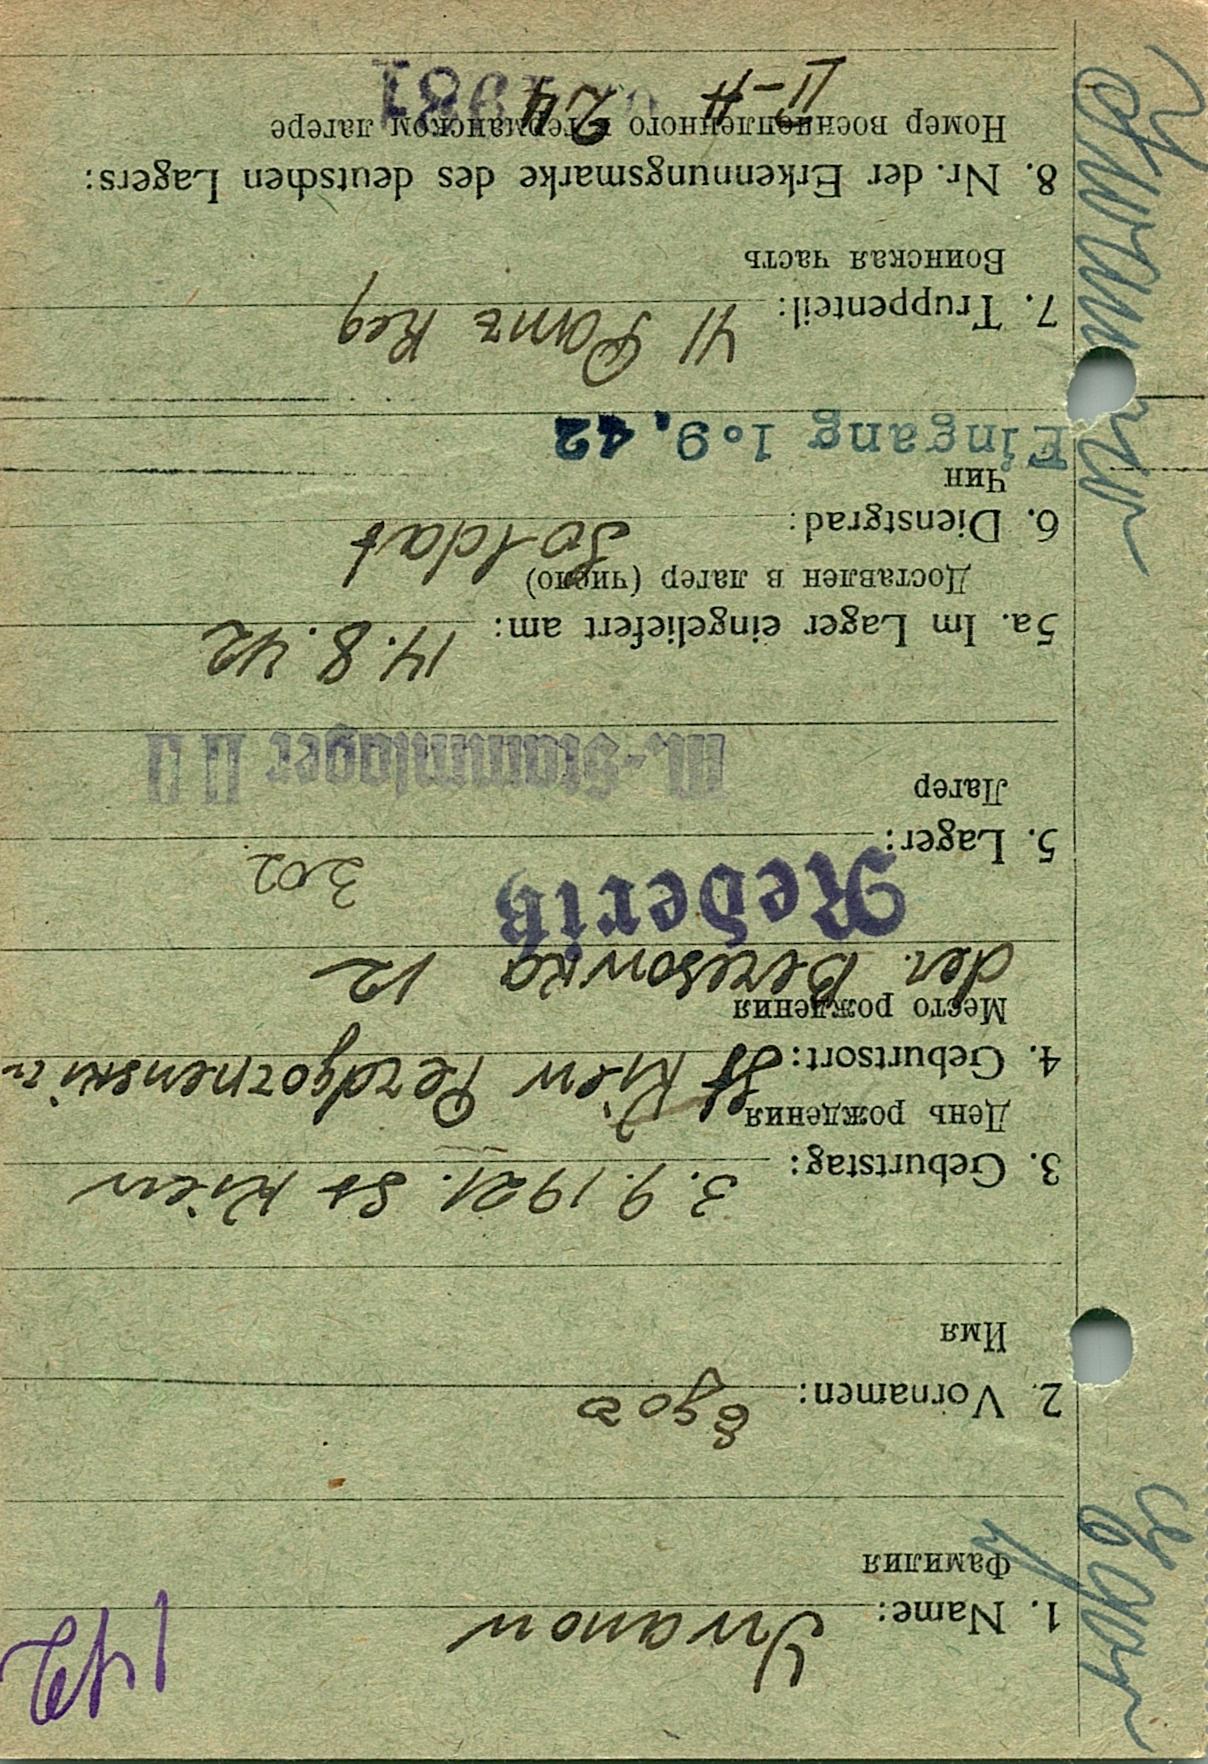 142
1. Name: Iwanow
Фамилия
2. Vornamen: Egoo
Имя
3. Geburtstag: 3.9.1921. St Kiew
День рождения
4. Geburtsort: St Kiew
Место рождения
der. Beresowka 12
Rederitz
5. Lager: 302
Лагер
M.-Stammlager II
5a. Im Lager eingeliefert am: 14.8.42
Доставлен в лагер (число)
6. Dienstgrad: Soldat
Чин
Eingang 1.9.42
7. Truppenteil: 41 Panz Reg
Воинская часть
8. Nr. der Erkennungsmarke des deutschen Lagers:
Номер военнопленного в германском лагере
II-H 24981
Iwanow
Egor